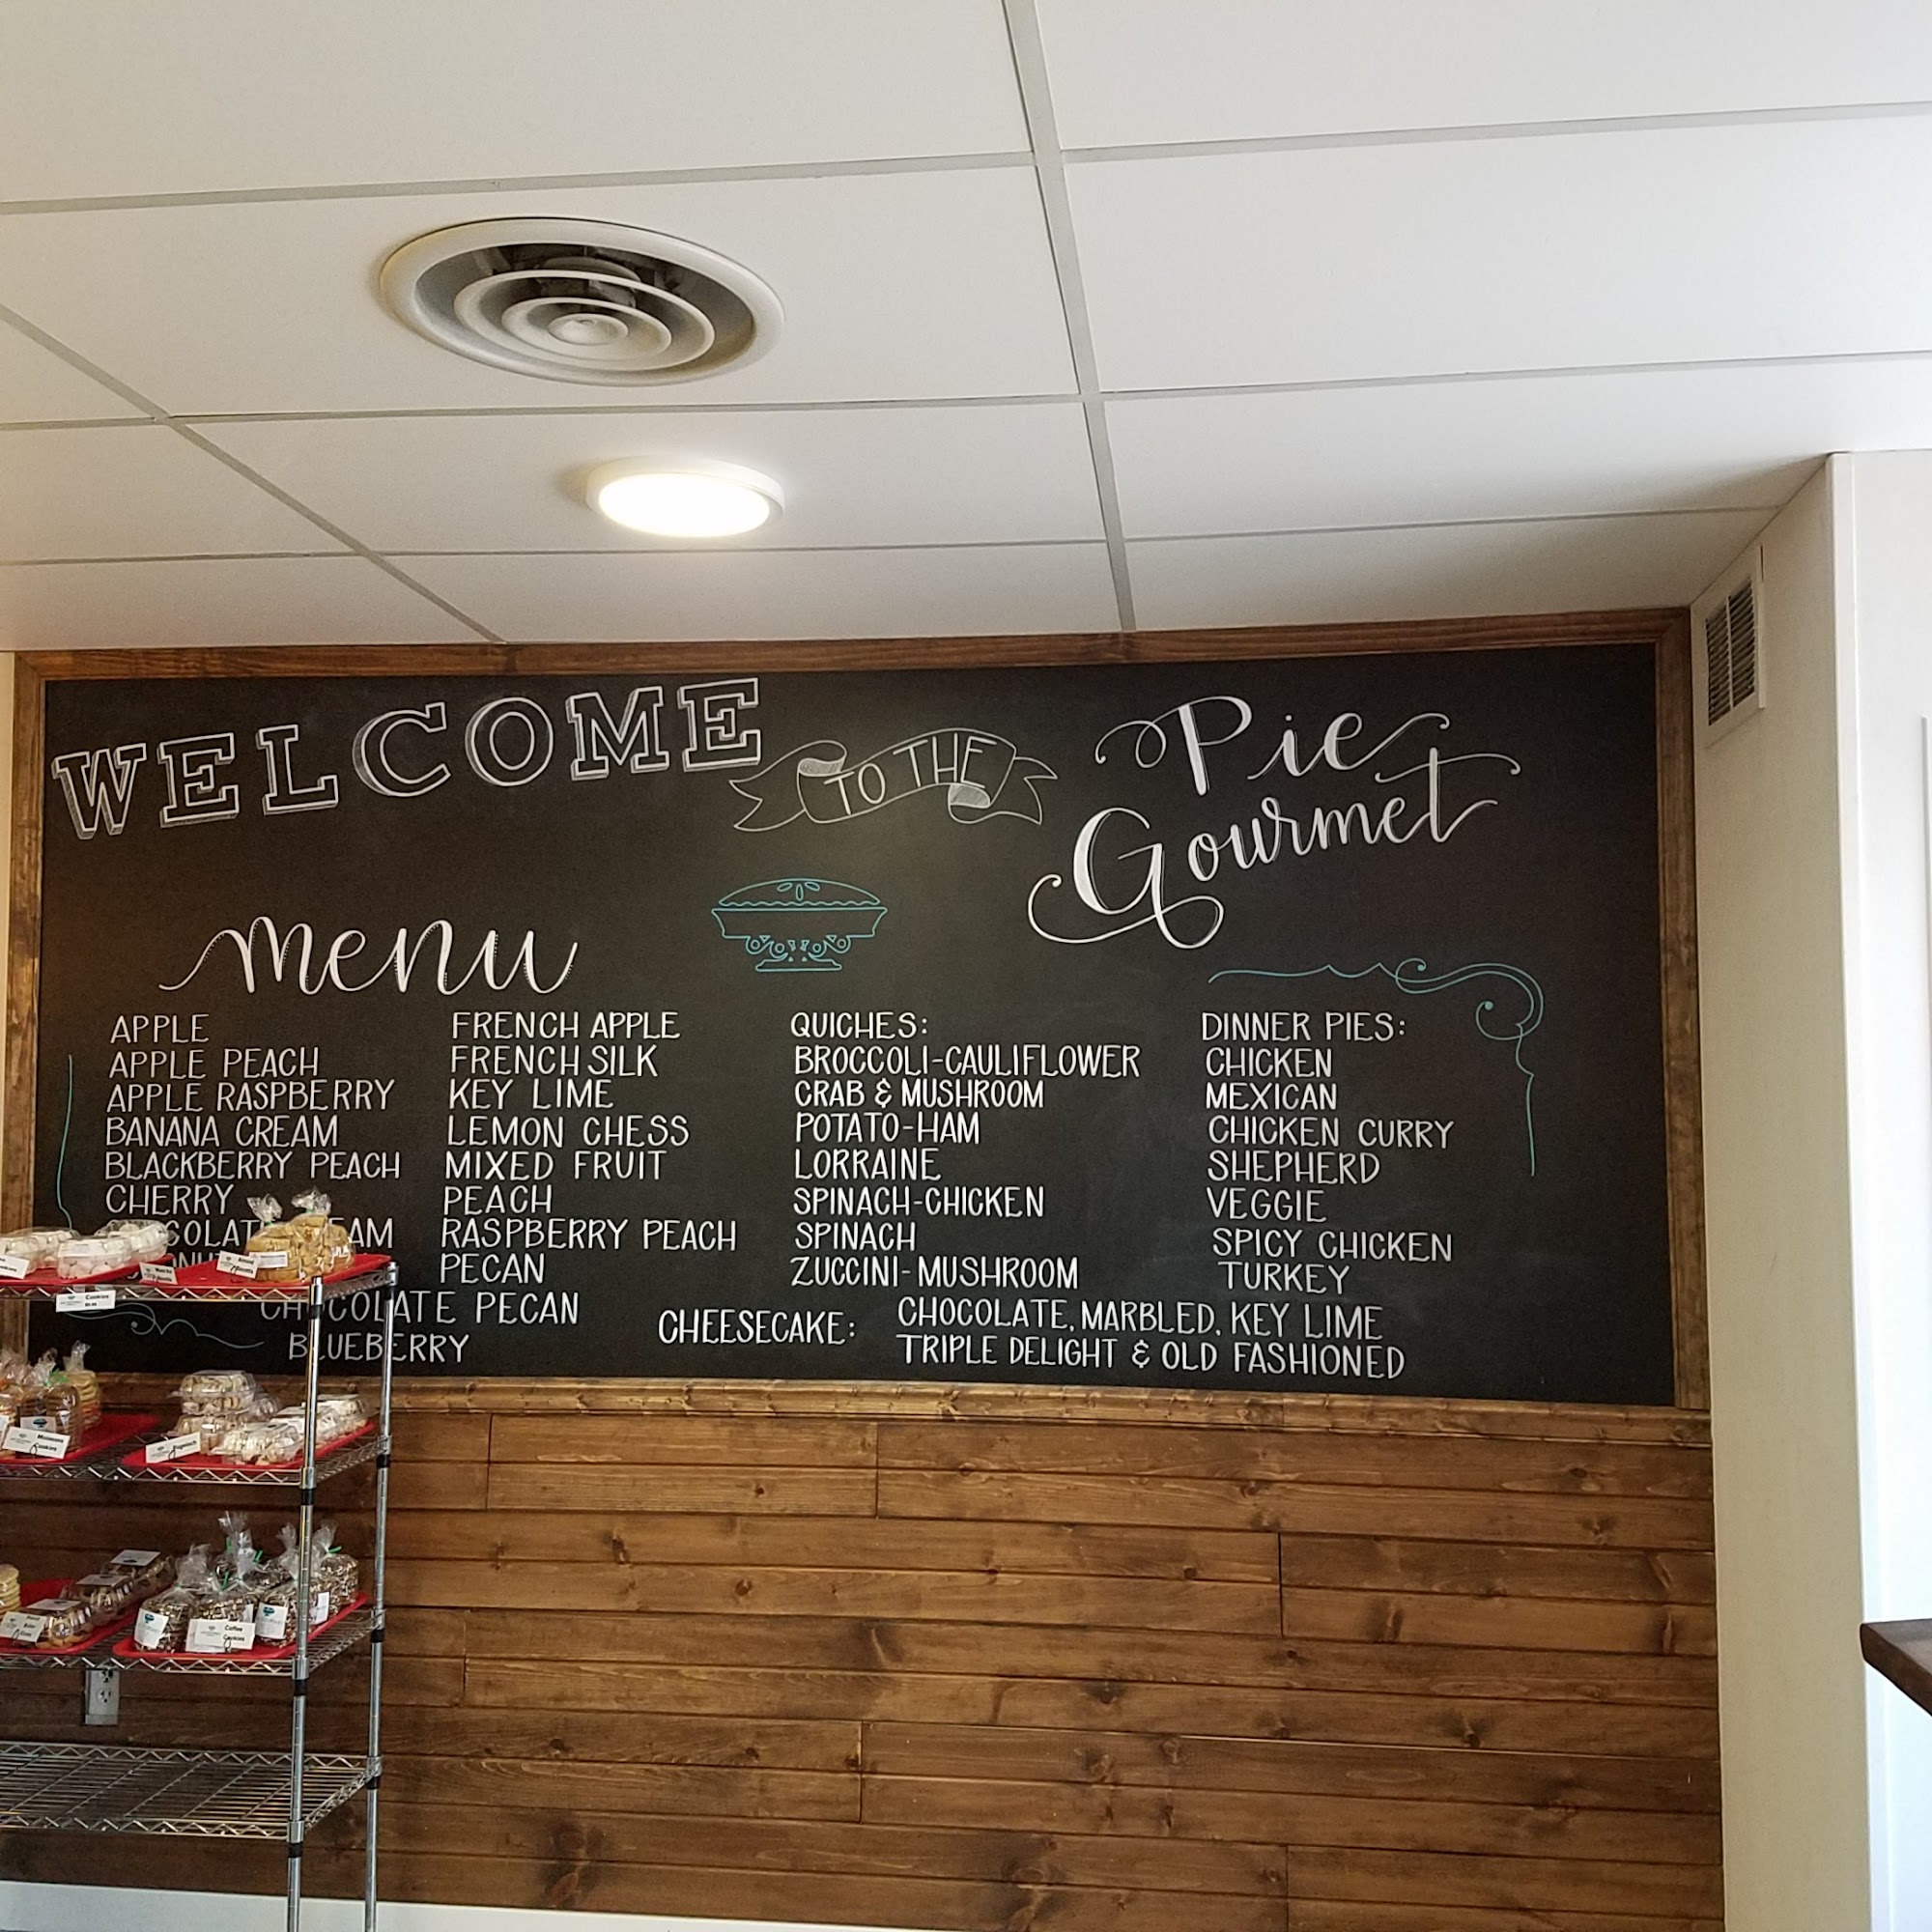 WELCOME TO THE Pie
Gourmet
menu
APPLE
APPLE PEACH
APPLE RASPBERRY
BANANA CREAM
BLACKBERRY PEACH
CHERRY
FRENCH APPLE
FRENCH SILK
KEY LIME
LEMON CHESS
MIXED FRUIT
PEACH
RASPBERRY PEACH
PECAN
CHOCOLATE PECAN
BLUEBERRY
QUICHES:
BROCCOLI-CAULIFLOWER
CRAB & MUSHROOM
POTATO-HAM
LORRAINE
SPINACH-CHICKEN
SPINACH
ZUCCINI-MUSHROOM
DINNER PIES:
CHICKEN
MEXICAN
CHICKEN CURRY
SHEPHERD
VEGGIE
SPICY CHICKEN
TURKEY
CHEESECAKE: CHOCOLATE, MARBLED, KEY LIME
TRIPLE DELIGHT & OLD FASHIONED
Cookies
Cookies
Coffee
Cookies